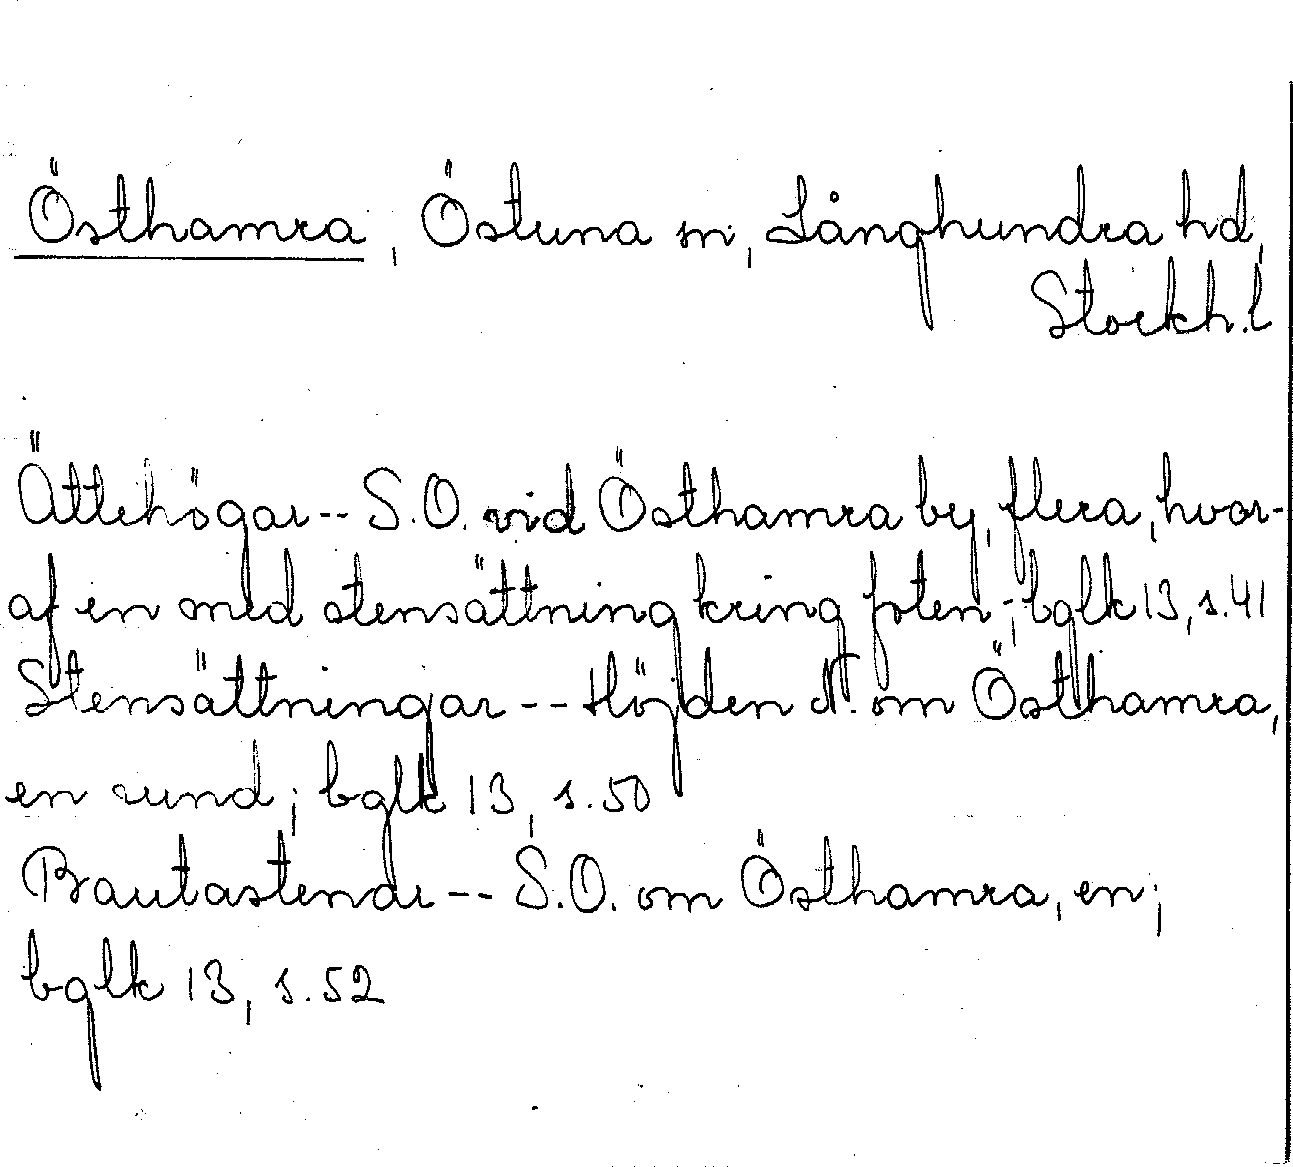 Östhamra, Östuna sn, Långhundra hd,
Stockh.l
Ättehögar -- S.O. vid Östhamra by, flera, hvar-
af en med stensättning kring foten; bglk 13, s.41
Stensättningar -- Höjden N. om Östhamra,
en rund; bglk 13, s.50
Bautastenar -- S.O. om Östhamra, en;
bglk 13, s.52